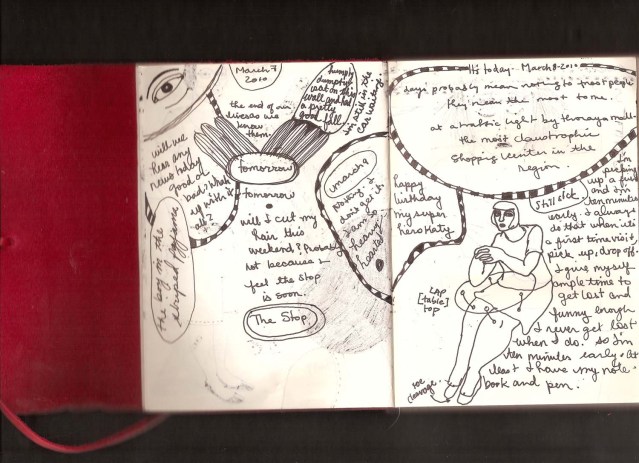 March 7
2010
humpty
dumpty
sat on the
wall and had
a pretty
good fall.
I'm still in the
car waiting.
the end of our
as we
know
them.
will we
hear any
news today
good or
bad? what's
up with it
all?
tomorrow
tomorrow
will I cut my
hair this
weekend? Probably
not because I
feel the stop
is soon.
The Stop
the boy in the
striped pajamas
march 9
I
don't get it.
I am so
heavy
hearted
It's today. March 8. 2010
days probably mean nothing to most people
they mean the most to me.
at a traffic light by
the most claustrophic
shopping center in the
region.
happy
birthday
my super
hero Katy
still sick
I'm
picking
up a
and I'm
ten minutes
early. I always
do that when it's
a first time visit,
pick up, drop off.
I give myself
ample time to
get lost and
funny enough
I never get lost
when I do. so I'm
ten minutes early. At
least I have my note
book and pen.
LAP
[table]
top
toe
cleavage